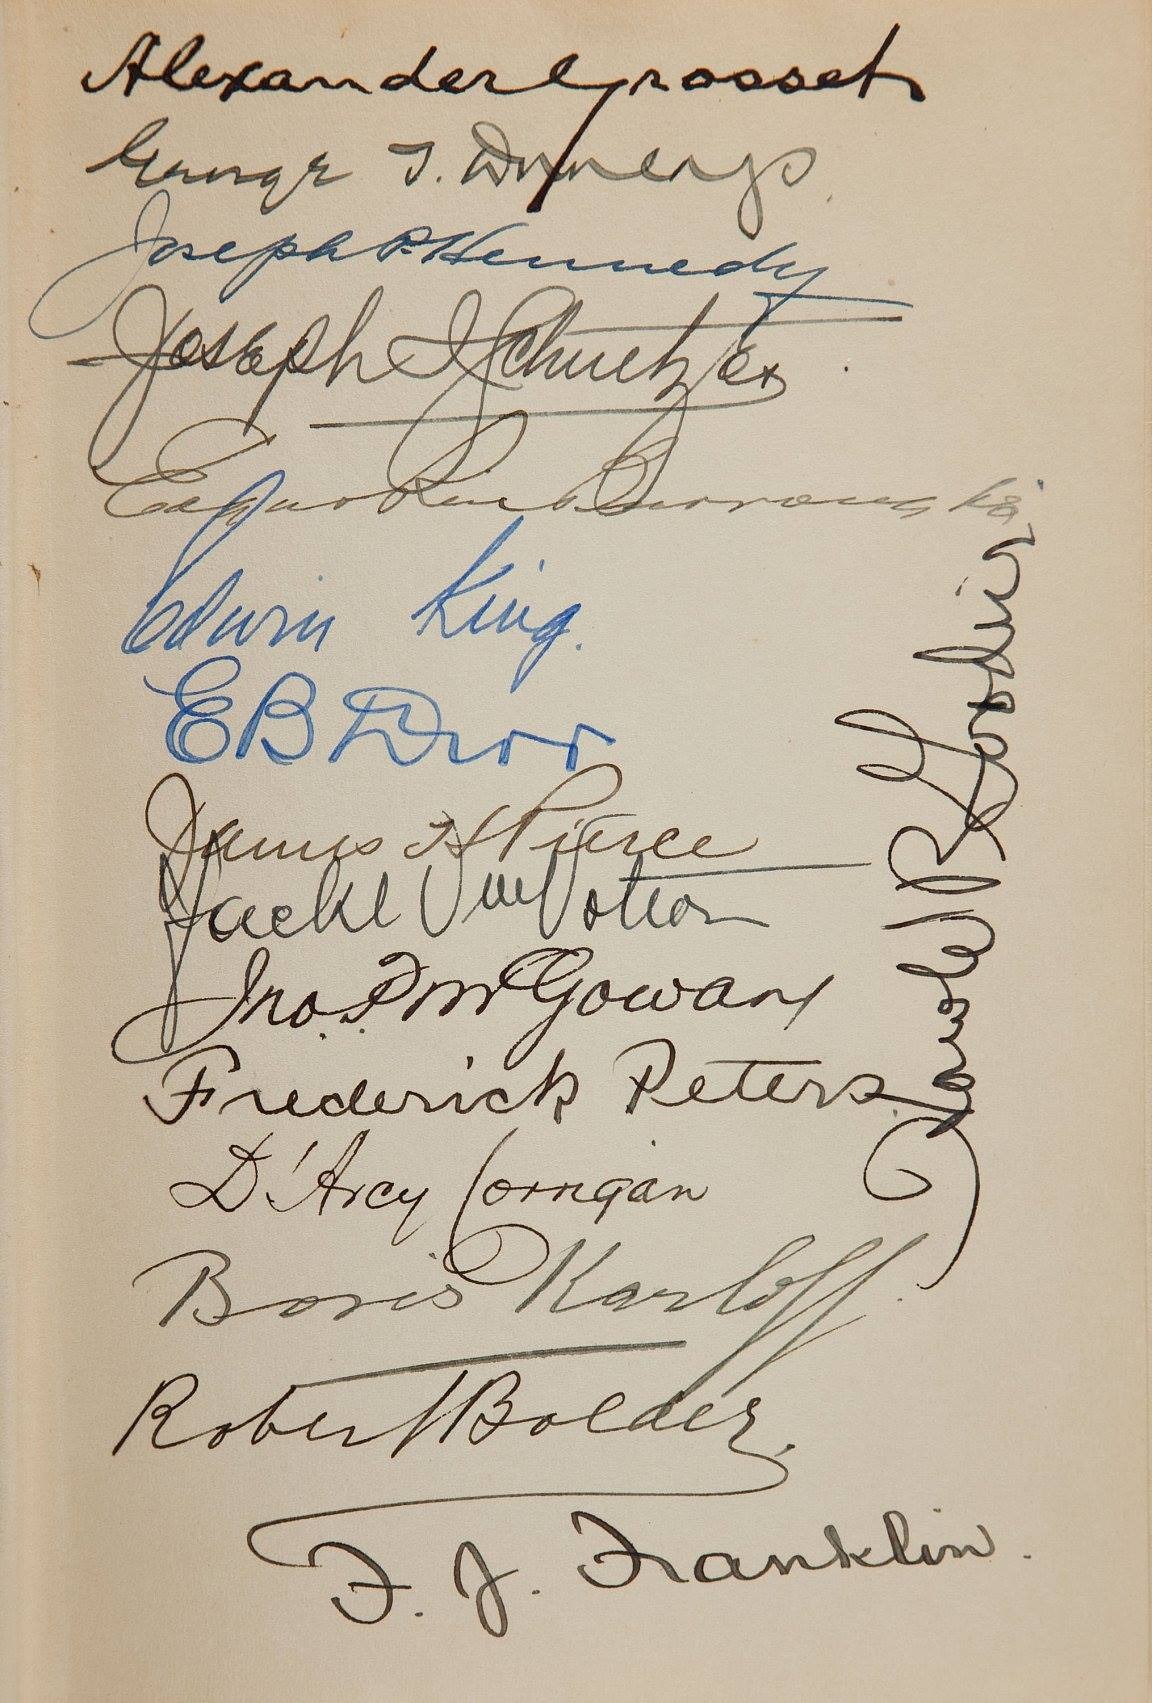 Alexander Grosset
George T.
Joseph P. Kennedy
Joseph I Schnitzer
Edgar Rice Burroughs
Edwin King.
E B Derr
James H Pierce
Jno. P. McGowan
Frederick Peters
D'Arcy Corrigan
Boris Karloff.
Robert Bolder.
F. J. Franklin.
Charles R